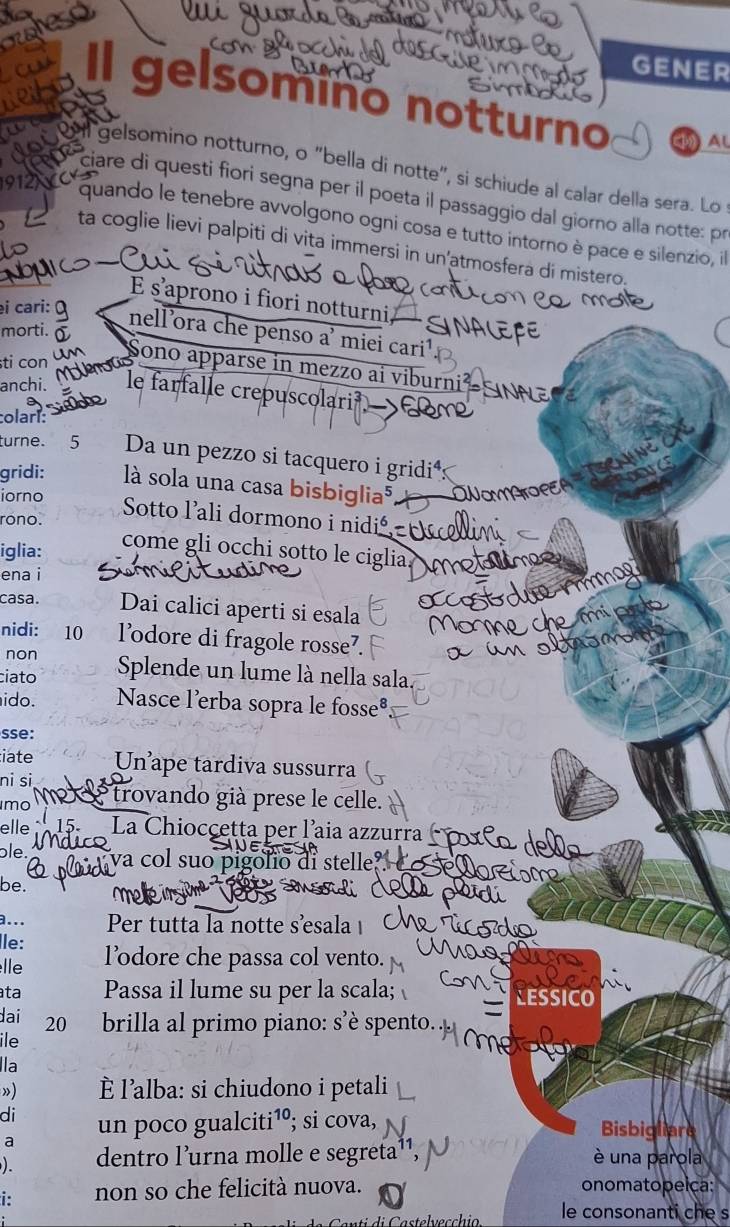 lui guarda la natura, mette la
con gli occhi del
descrive in modo
simbolico
GENER
Il gelsomino notturno
AU
Il gelsomino notturno, o "bella di notte", si schiude al calar della sera. Lo s
ciare di questi fiori segna per il poeta il passaggio dal giorno alla notte: pr
quando le tenebre avvolgono ogni cosa e tutto intorno è pace e silenzio, il
ta coglie lievi palpiti di vita immersi in un'atmosfera di mistero.
1912
Cui si ritrova a fare conti con la morte
E s'aprono i fiori notturni, A SINALEFE
nell'ora che penso a' miei cari¹. B
Sono apparse in mezzo ai viburni² SINALEFE
le farfalle crepuscolari³.
5 Da un pezzo si tacquero i gridi⁴:
là sola una casa bisbiglia⁵. D ONOMATOPEA
Sotto l'ali dormono i nidi⁶, = uccellini C
come gli occhi sotto le ciglia. D
similitudine
Dai calici aperti si esala E
10 l'odore di fragole rosse⁷. F
Splende un lume là nella sala. E
Nasce l'erba sopra le fosse⁸. F
Un'ape tardiva sussurra G
trovando già prese le celle. H
metafora
15 La Chioccetta per l'aia azzurra G parla della
indica SINESTESIA
la pleiadi va col suo pigolio di stelle⁹. H costellazione
mette insieme 2 sfere sensoriali delle pleiadi
Per tutta la notte s'esala I che ricorda
l'odore che passa col vento. M una gallina
Passa il lume su per la scala; I con i pulcini
20 brilla al primo piano: s'è spento... M = metafora
È l'alba: si chiudono i petali L
un poco gualciti¹⁰; si cova, N
dentro l'urna molle e segreta¹¹, N
non so che felicità nuova. O
LESSICO
Bisbigliare
è una parola
onomatopeica:
le consonanti che s
ei cari:
morti.
sti con
anchi.
colari:
turne.
gridi:
iorno
rono.
iglia:
ena i
casa.
nidi:
non
ciato
nido.
sse:
ciate
ni si
umo
elle
ole.
be.
a...
lle:
elle
ata
dai
ile
lla
»)
di
a
).
i:
Canti di Castelvecchio